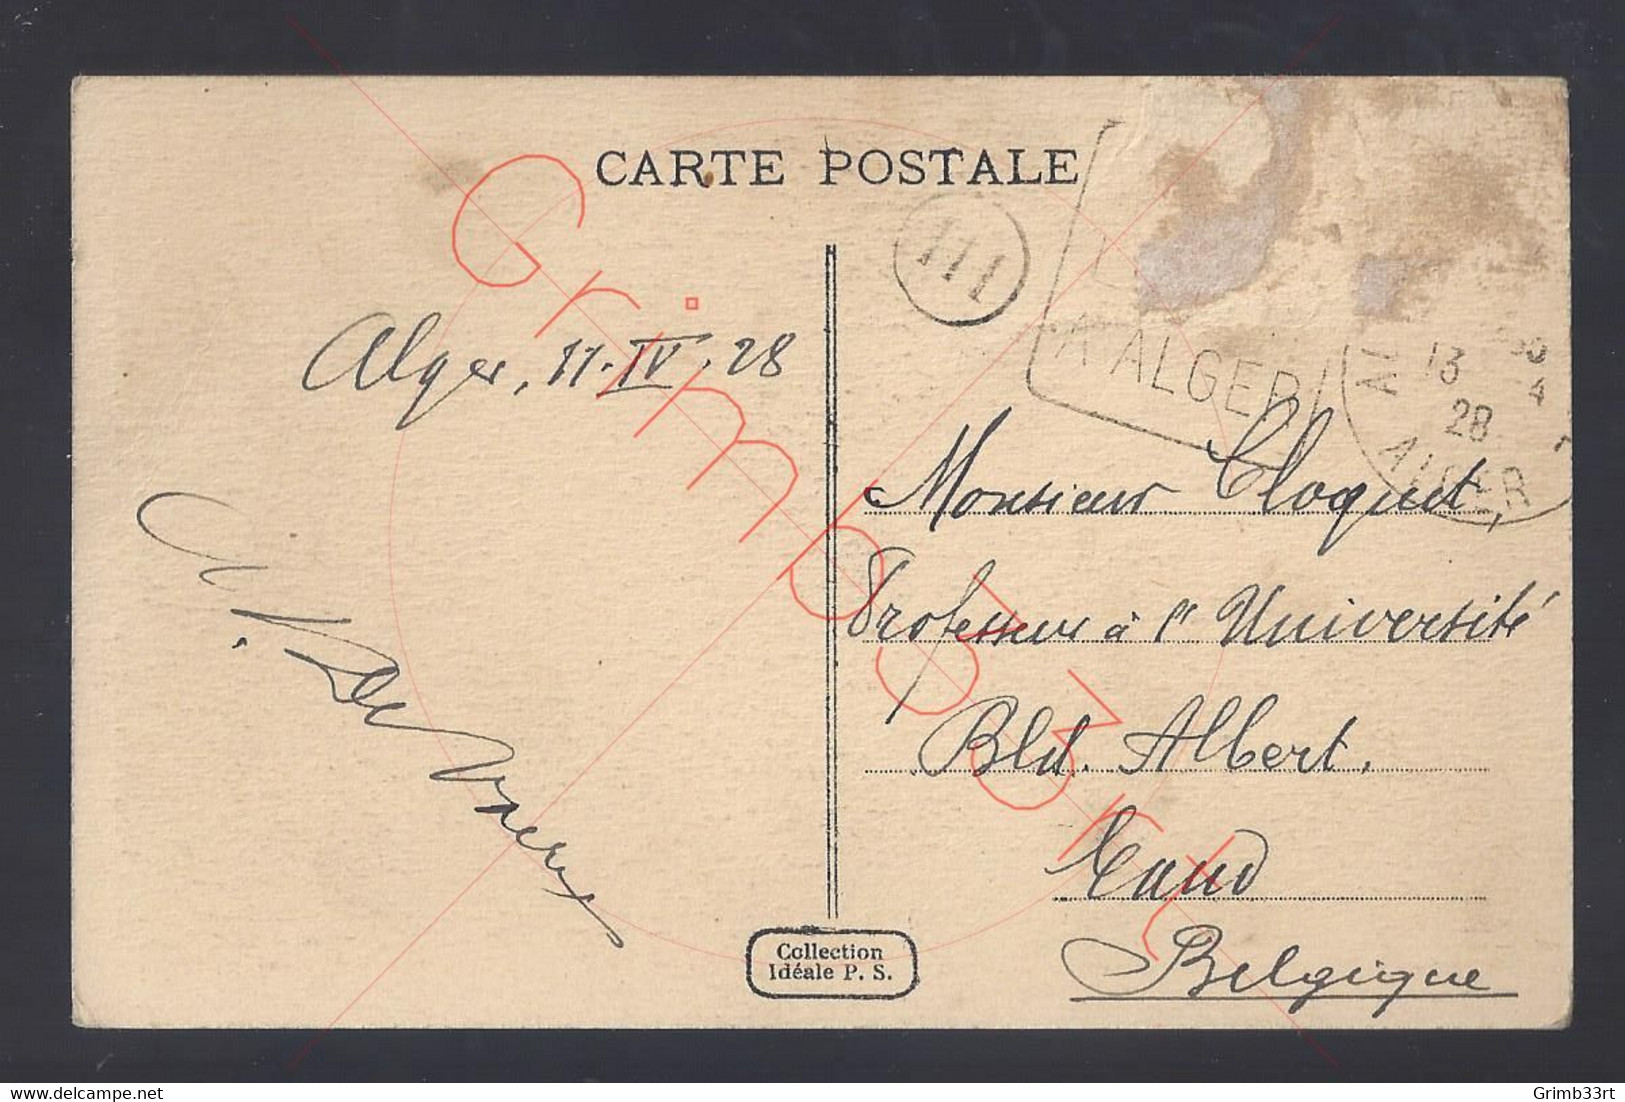 CARTE POSTALE
111
A ALGER
13
4
28
ALGER
Alger, 11-IV-28
Monsieur Cloquet,
Professeur à l'Université
Bld. Albert.
Gand
Belgique
Collection
Idéale P. S.
Grimb33rt
delcampe.net
Grimb33rt